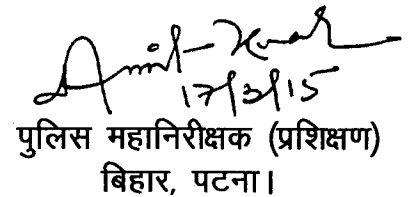 Amit Kumar
17/3/15
पुलिस महानिरीक्षक (प्रशिक्षण)
बिहार, पटना।